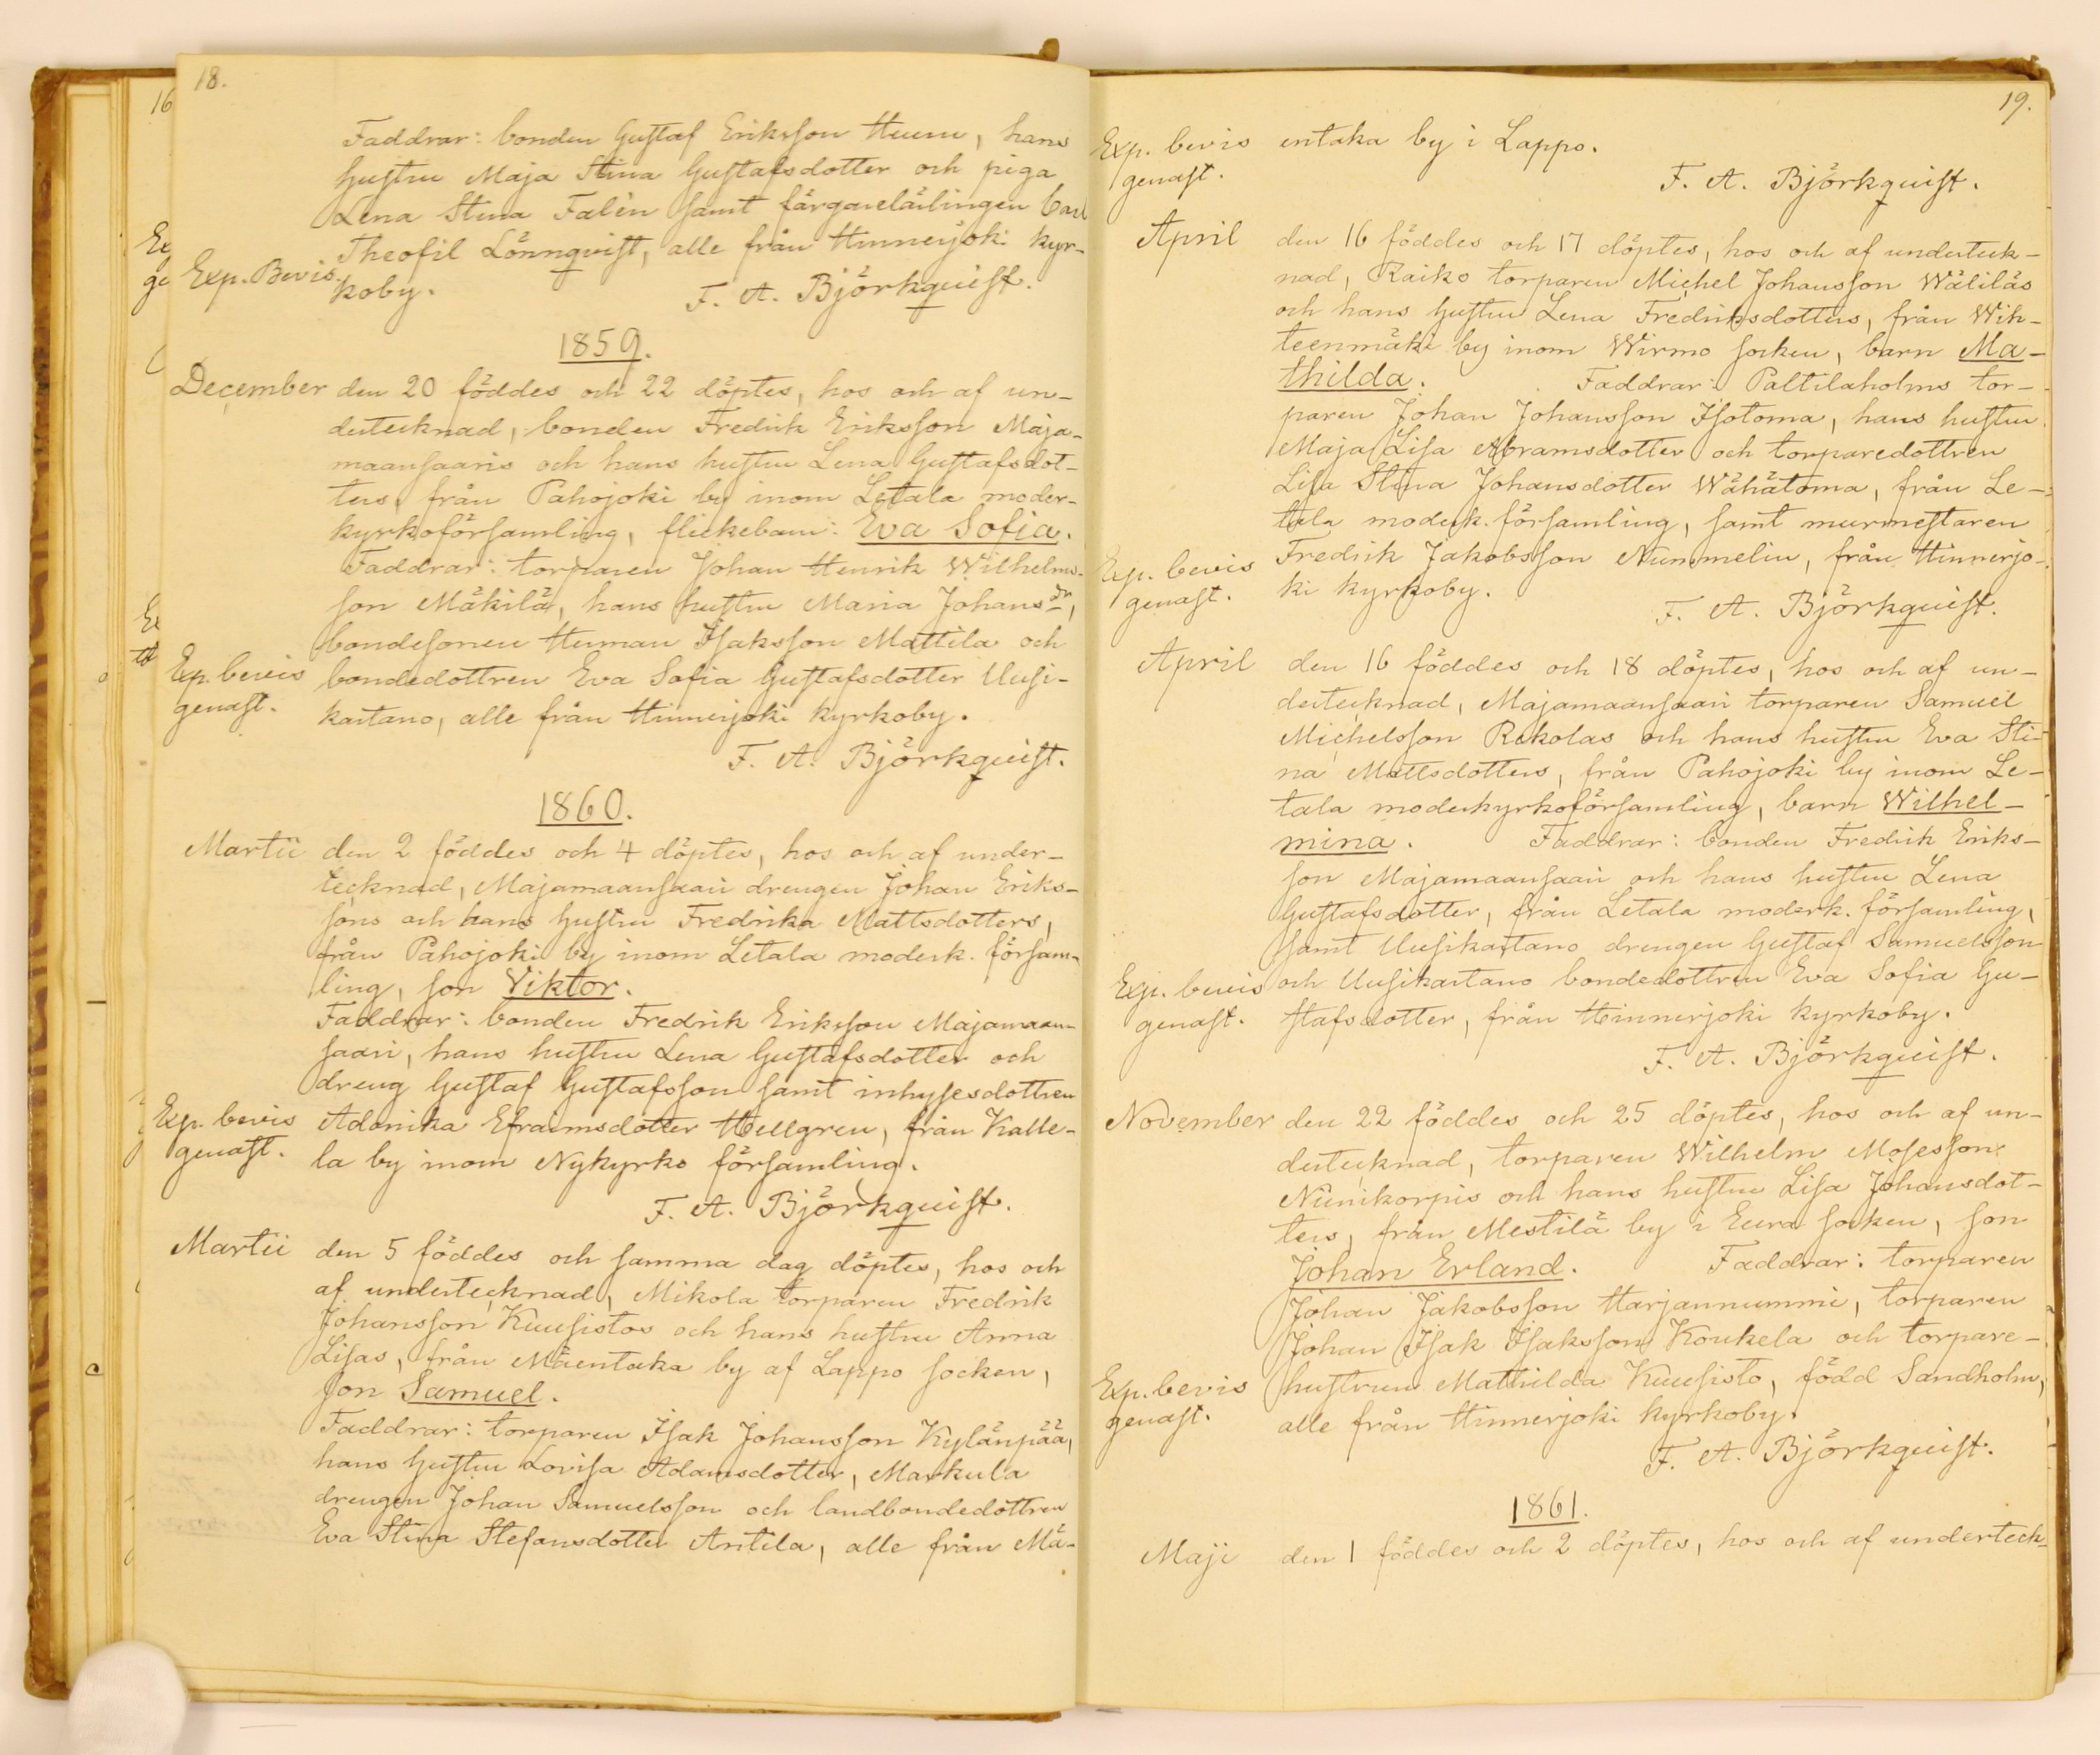 18.
16
Faddrar: bonden Gustaf Eriksson Huru, hans
hustru Maja Stina Gustafsdotter och piga
Lena Stina Falèn samt färgarelärlingen Carl
Theofil Lönnqvist, alle från Hinnerjoki kyr-
Exp. Bevis.
koby.
F. A. Björkquist.
1859.
December den 20 föddes och 22 döptes, hos och af un-
dertecknad, bonden Fredrik Eriksson Maja-
maansaaris och hans hustru Lena Gustafsdot-
ters, från Pahojoki by inom Letala moder-
kyrkoförsamling, flickebarn: Eva Sofia.
Faddrar: torparen Johan Henrik Wilhelms-
son Mäkilä, hans hustru Maria Johansdr,
bondesonen Herman Isaksson Mattila och
Exp. bevis bondedottren Eva Sofia Gustafsdotter Uusi-
genast. kartano, alle från Hinnerjoki kyrkoby.
F. A. Björkquist.
1860.
Martii den 2 föddes och 4 döptes, hos och af under-
tecknad, Majamaansaari drengen Johan Eriks-
sons och hans hustru Fredrika Mattsdotters,
från Pahojoki by inom Letala moderk. försam-
ling, son Viktor.
Faddrar: bonden Fredrik Eriksson Majamaan-
saari, hans hustru Lena Gustafsdotter och
dreng Gustaf Gustafsson samt inhysesdottren
Exp. bevis Adonika Efraimsdotter Hellgren, från Kalle-
genast. la by inom Nykyrko församling.
F. A. Björkquist.
Martii den 5 föddes och samma dag döptes, hos och
af undertecknad, Mikola torparen Fredrik
Johansson Kuusistos och hans hustru Anna
Lisas, från Mäentaka by af Lappo socken,
son Samuel.
Faddrar: torparen Isak Johansson Kylänpää,
hans hustru Lovisa Adamsdotter, Markula
drengen Johan Samuelsson och landbondedottren
Eva Stina Stefansdotter Antila, alle från Mä-
19.
Exp. bevis entaka by i Lappo.
genast.
F. A. Björkquist.
April den 16 föddes och 17 döptes, hos och af underteck-
nad, Raiko torparen Michel Johansson Wäliläs
och hans hustru Lena Fredriksdotters, från Wih-
teenmäki by inom Wirmo socken, barn Ma-
thilda. Faddrar: Paltilaholms tor-
paren Johan Johansson Isotoma, hans hustru
Maja Lisa Abramsdotter och torparedottren
Lisa Stina Johansdotter Wähätoma, från Le-
tala moderk. församling, samt murmestaren
Exp. bevis Fredrik Jakobsson Nummelin, från Hinnerjo-
genast. ki kyrkoby.
F. A. Björkquist.
April den 16 föddes och 18 döptes, hos och af un-
dertecknad, Majamaansaari torparen Samuel
Michelsson Rekolas och hans hustru Eva Sti-
na Mattsdotters, från Pahojoki by inom Le-
tala moderkyrkoförsamling, barn Wilhel-
mina. Faddrar: bonden Fredrik Eriks-
son Majamaansaari och hans hustru Lena
Gustafsdotter, från Letala moderk. församling,
samt Uusikartano drengen Gustaf Samuelsson
Exp. bevis och Uusikartano bondedottren Eva Sofia Gu-
genast. stafsdotter, från Hinnerjoki kyrkoby.
F. A. Björkquist.
November den 22 föddes och 25 döptes, hos och af un-
dertecknad, torparen Wilhelm Mosesson
Niinikorpis och hans hustru Lisa Johansdot-
ters, från Mestilä by i Eura socken, son
Johan Erland. Faddrar: torparen
Johan Jakobsson Harjannummi, torparen
Johan Isak Isaksson Koukela och torpare-
Exp. bevis hustrun Mathilda Kuusisto, född Sandholm,
genast. alle från Hinnerjoki kyrkoby.
F. A. Björkquist.
1861.
Maji den 1 föddes och 2 döptes, hos och af underteck-